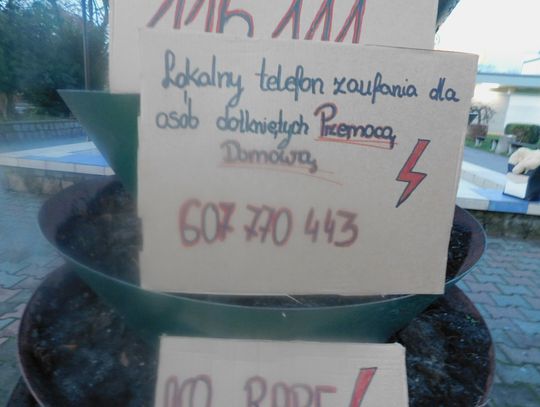 116 111
Lokalny telefon zaufania dla
osób dotkniętych Przemocą
Domową
607 770 443